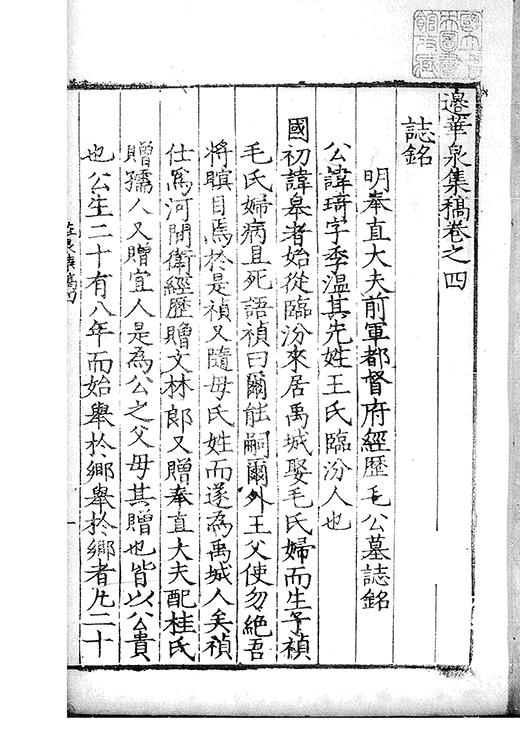 邊華泉集稿卷之四
誌銘
明奉直大夫前軍都督府經歷毛公墓誌銘
公諱琦字季溫其先姓王氏臨汾人也
國初諱皋者始從臨汾來居禹城娶毛氏婦而生子禎
毛氏婦病且死語禎曰爾能嗣爾外王父使勿絕吾
將瞑目焉於是禎又隨母氏姓而遂為禹城人矣禎
仕為河間衛經歷贈文林郎又贈奉直大夫配桂氏
贈孺人又贈宜人是為公之父母其贈也皆以公貴
也公生二十有八年而始舉於鄉舉於鄉者凡二十